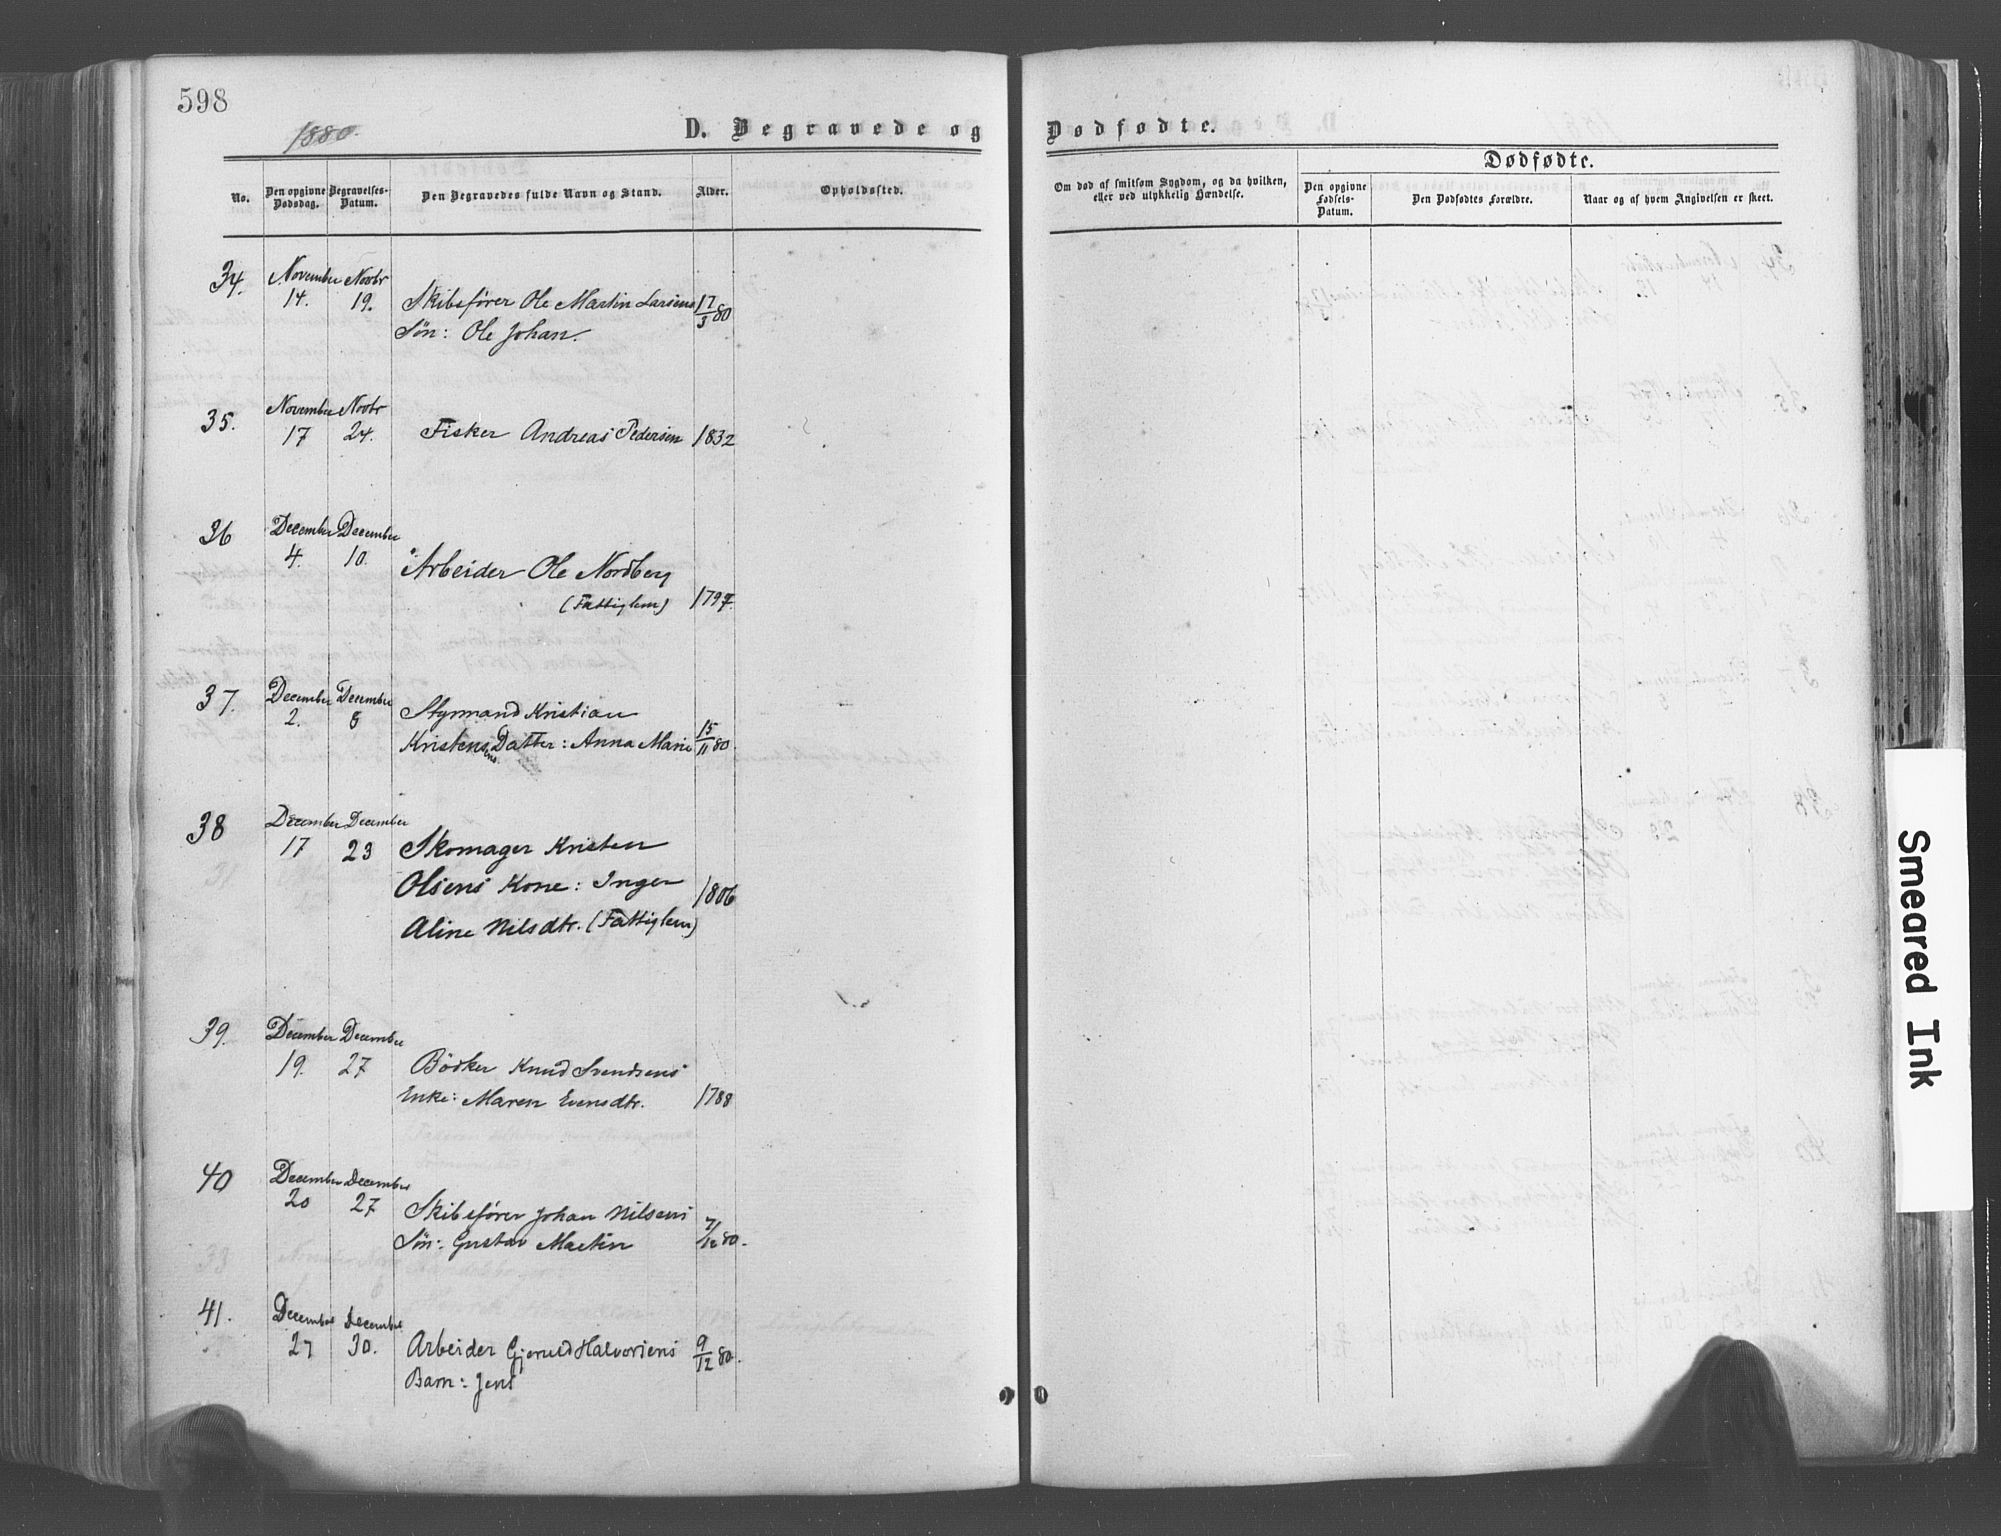 598
1880.
D. Begravede og Dødfødte.
Dødfødte.
No.
Den opgivne Dødsdag.
Begravelses-Datum.
Den Begravedes fulde Navn og Stand.
Alder.
Opholdssted.
Om død af smitsom Sygdom, og da hvilken, eller ved ulykkelig Hændelse.
Den opgivne Fødsels-Datum.
Den Dødfødtes Forældre.
Naar og af hvem Angivelsen er skeet.
34. November 14. Novbr 19. Skibsfører Ole Martin Larsens 17/3 80
Søn: Ole Johan.
35. November 17 Novbr 24. Fisker Andreas Pedersen 1832
36 December 4. December 10. Arbeider Ole Nordberg
(Fattiglem) 1797.
37. December 2. December 8 Styrmand Kristian
Kristensens Datter: Anna Marie 15/11 80.
38 December 17 December 23 Skomager Kristen
Olsens Kone: Inger 1806
Aline Nilsdtr. (Fattiglem)
39. December 19. December 27 Bødker Knud Svendsens
Enke: Maren Evensdtr. 1788
40 December 20 December 27 Skibsfører Johan Nilsens
Søn: Gustav Martin 7/12 80.
41. December 27 December 30. Arbeider Gjeruld Halvorsens 9/12 80.
Barn: Jens
Smeared Ink